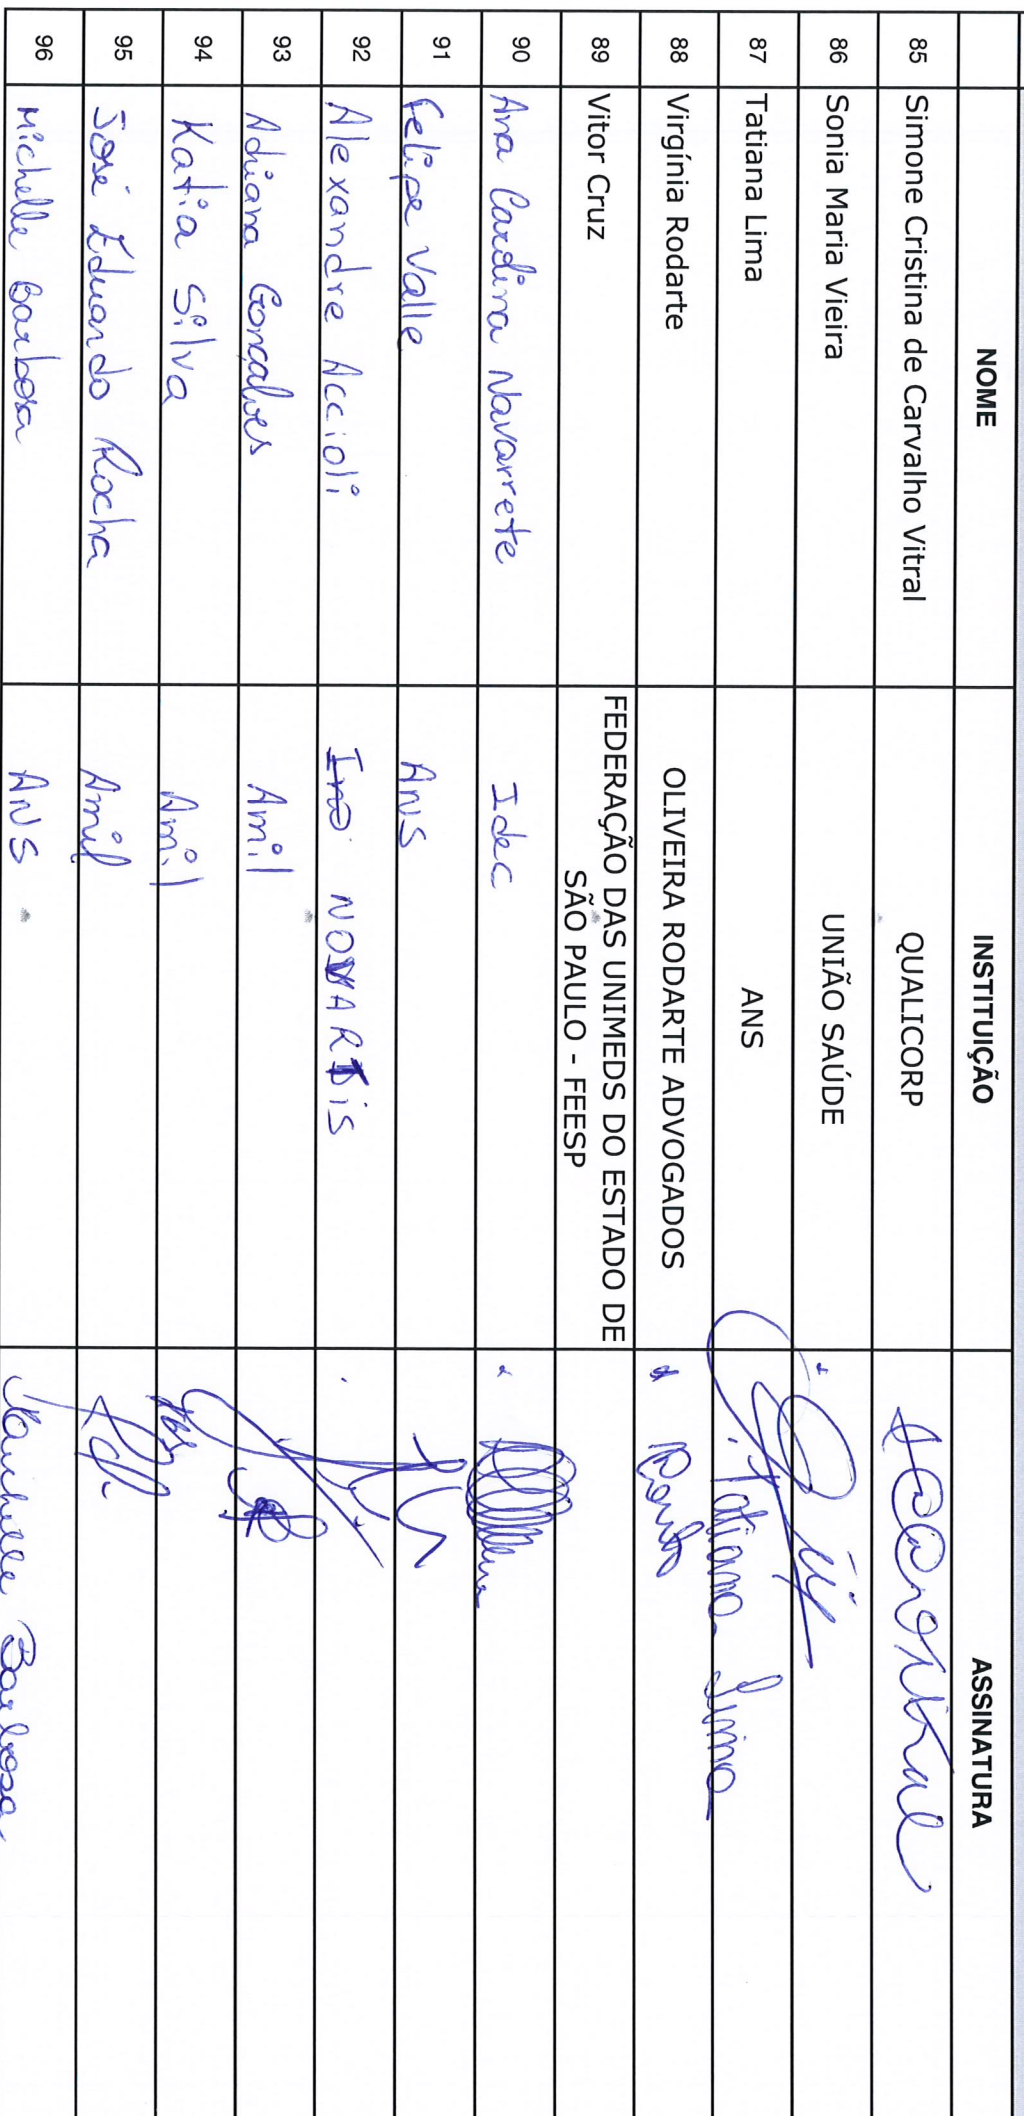 NOME INSTITUIÇÃO ASSINATURA
85 Simone Cristina de Carvalho Vitral QUALICORP
86 Sonia Maria Vieira UNIÃO SAÚDE
87 Tatiana Lima ANS Tatiana Lima
88 Virgínia Rodarte OLIVEIRA RODARTE ADVOGADOS
89 Vitor Cruz FEDERAÇÃO DAS UNIMEDS DO ESTADO DE
SÃO PAULO - FEESP
90 Ana Carolina Navarrete Idec
91 Felipe Valle ANS
92 Alexandre Accioli NOVARTIS
93 Adriana Gonçalves Amil
94 Katia Silva Amil
95 José Eduardo Rocha Amil
96 Michelle Barbosa ANS Michelle Barbosa